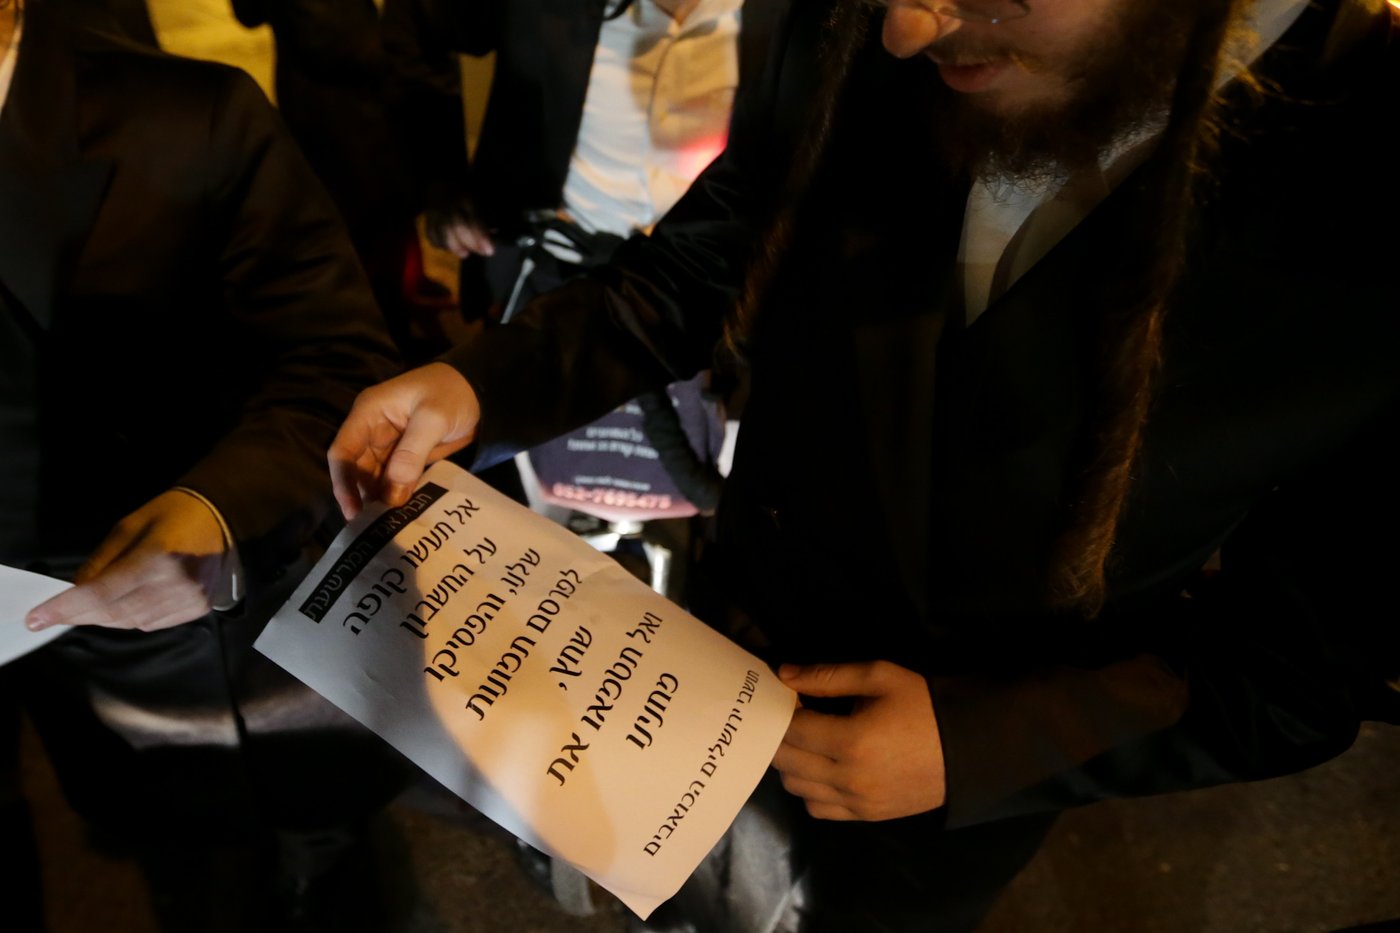 חברת אגד המרשעת
אל תעשו קופה
על החשבון
שלנו, והפסיקו
לפרסם תמונות
שחץ,
ואל תטמאו את
מחנינו
תושבי ירושלים הכואבים
052-7695473